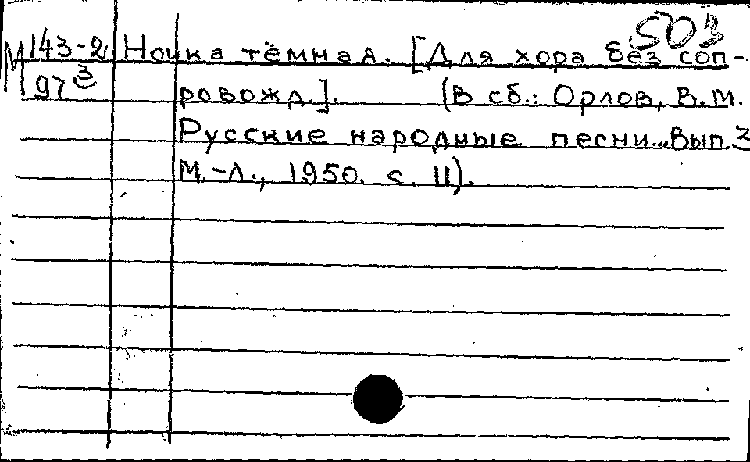 503
М 143-2 Ночка тёмная. [Для хора без соп-
97 3 ровожд.]. (В сб.: Орлов, В.М.
Русские народные песни. Вып. 3
М.-Л., 1950. с. 11).